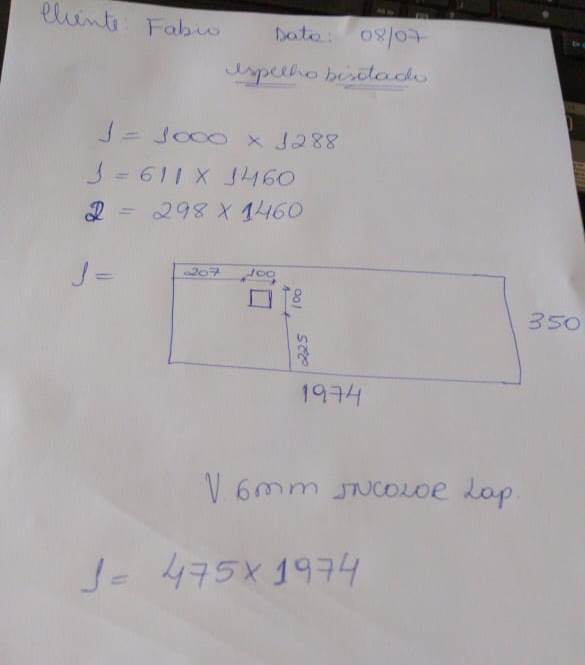 Cliente: Fabio Data: 08/07
espelho bisotado
1 = 1000 x 1288
1 = 611 x 1460
2 = 298 x 1460
1 =
207 100
100
225
350
1974
V. 6mm INCOLOR Lap.
1 = 475 x 1974